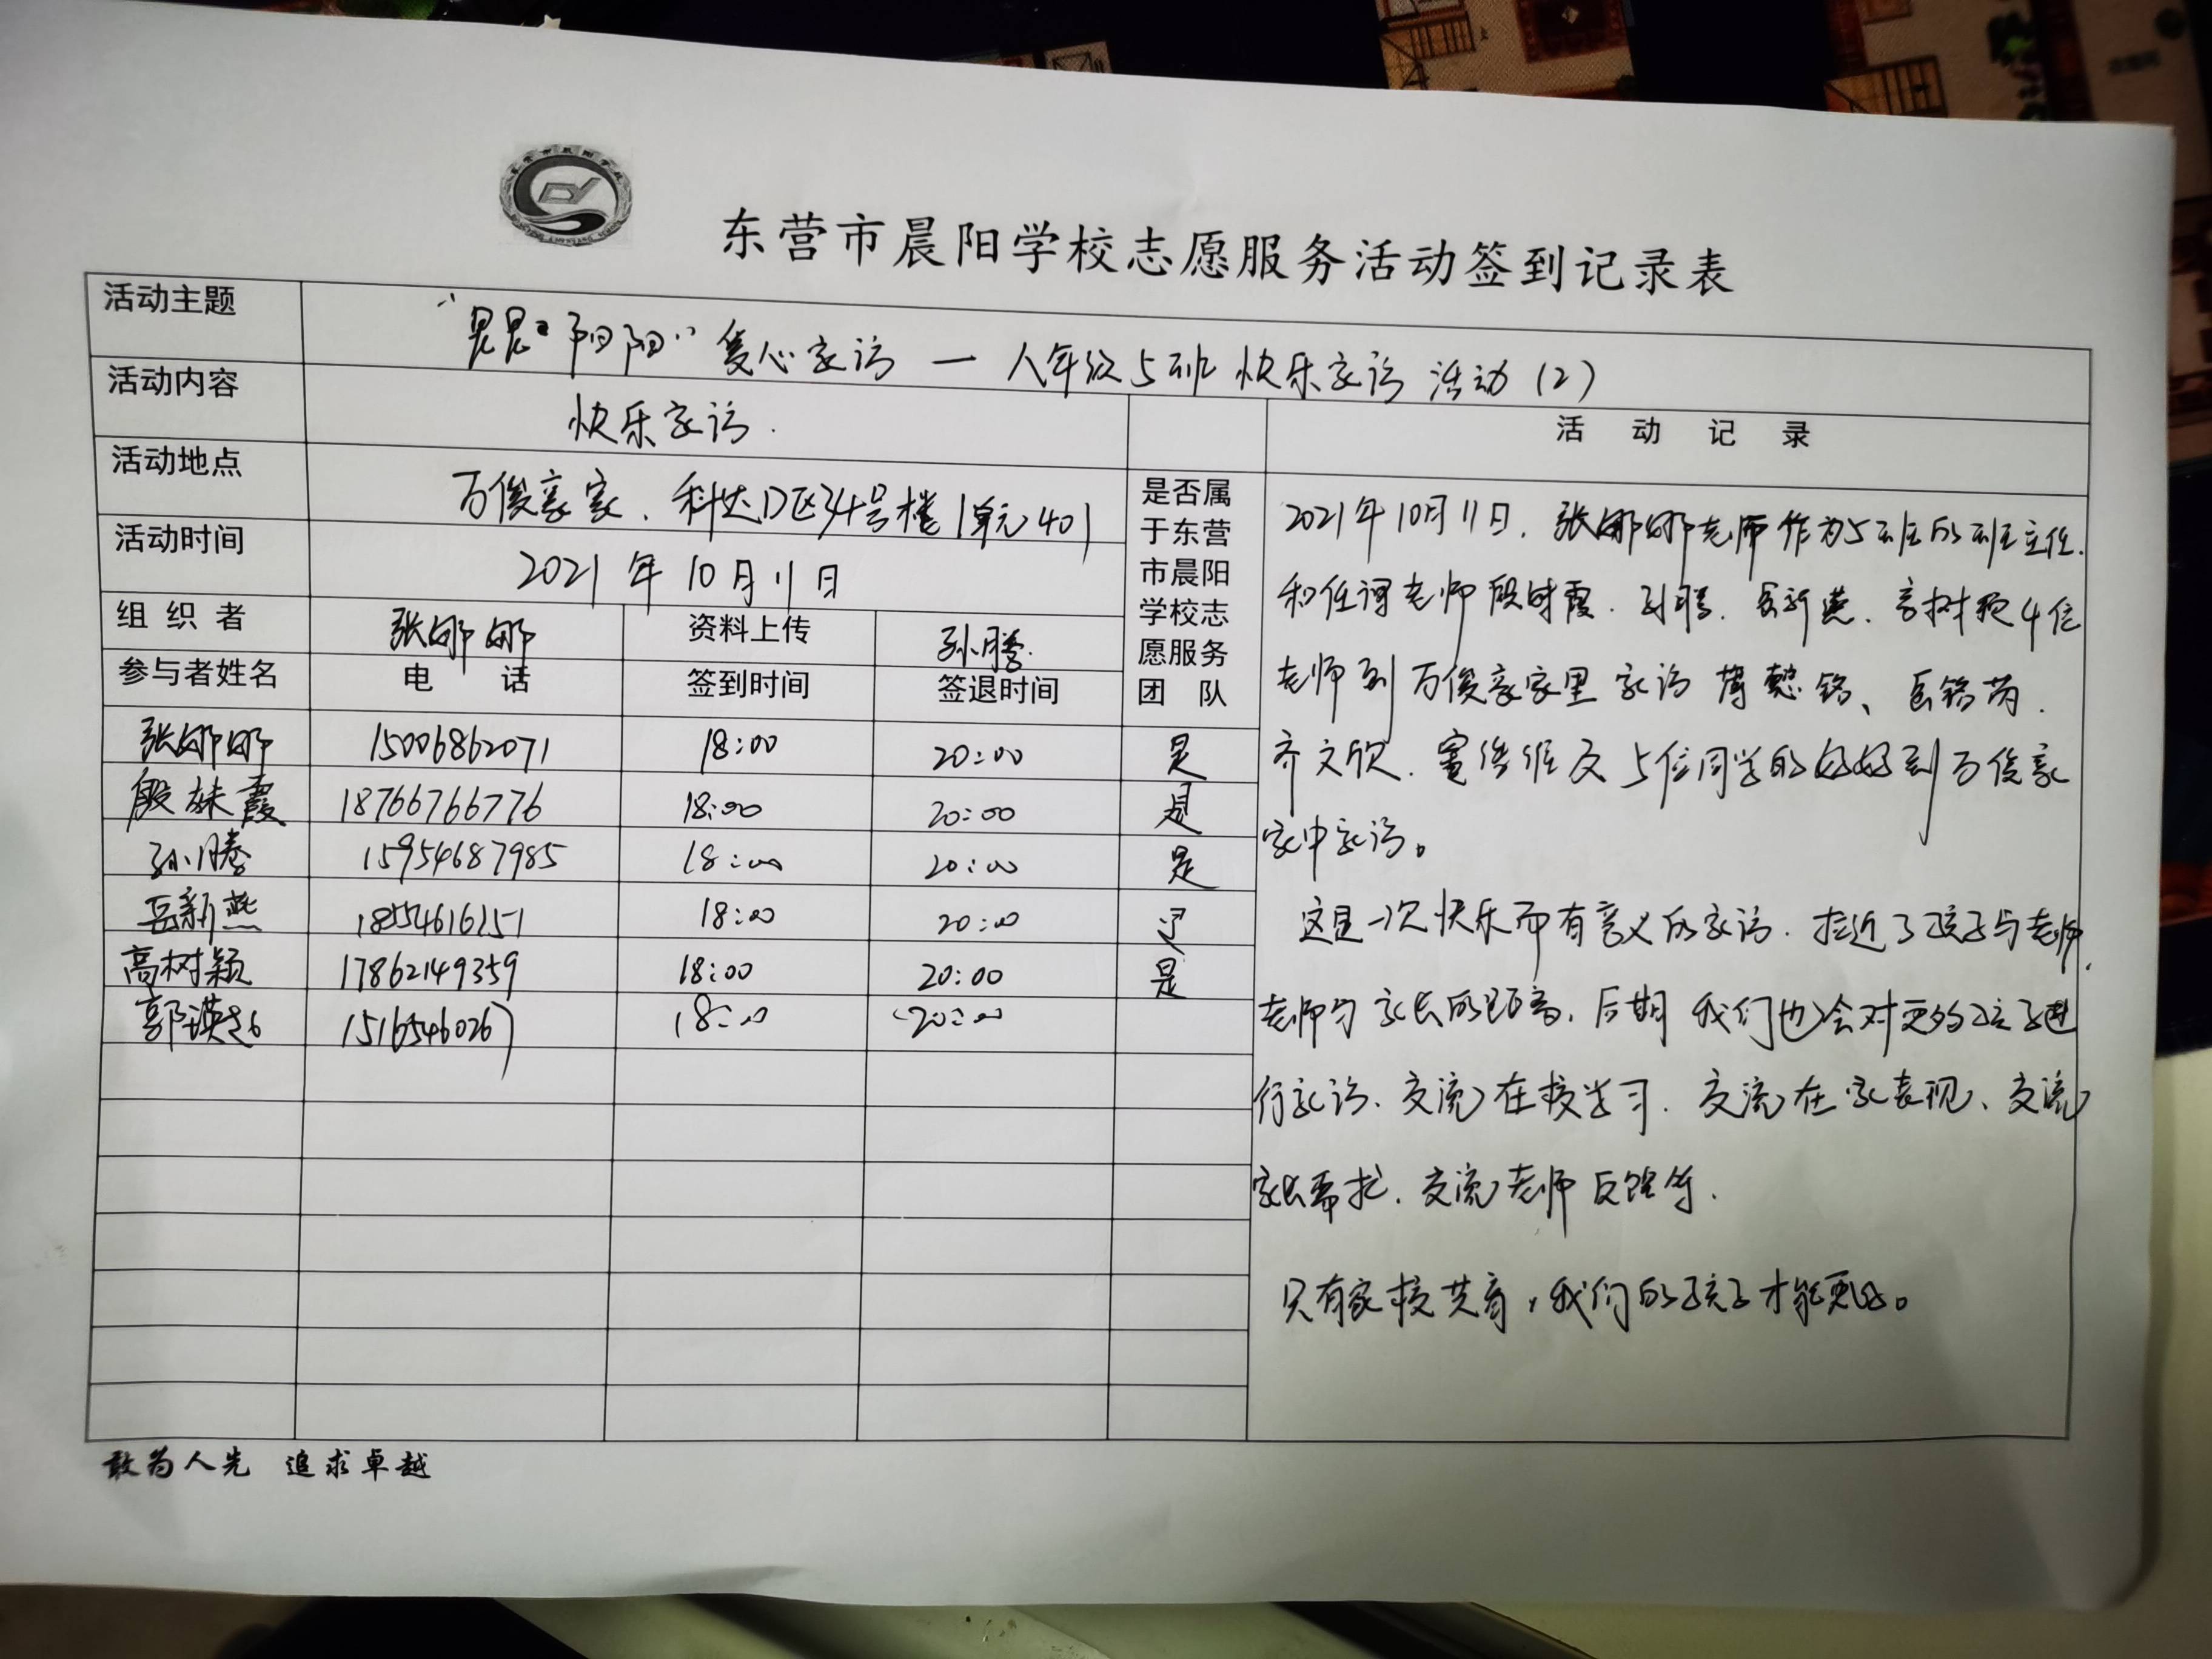 东营市晨阳学校志愿服务活动签到记录表
活动主题 "晨晨 阳阳"爱心家访 一 八年级5班 快乐家访 活动(2)
活动内容 快乐家访.
活动地点 万俊豪家、科达D区34号楼1单元401
活动时间 2021年10月11日
组织者 张娜娜 资料上传 孙腾.
参与者姓名 电 话 签到时间 签退时间 是否属于东营市晨阳学校志愿服务团队
张娜娜 15006862071 18:00 20:00 是
殷妹霞 18766766776 18:00 20:00 是
孙腾 15954687985 18:00 20:00 是
岳新燕 18:00 20:00 是
高树颖 17862149359 18:00 20:00 是
15165460267 18:00 20:00
活 动 记 录
2021年10月11日,张娜娜老师作为5班的班主任.
和任课老师殷妹霞.孙腾.岳新燕.高树颖4位
老师到万俊豪家里家访
齐文欣. 及5位同学的妈妈到万俊豪
家中家访。
这是一次快乐而有意义的家访.拉近了孩子与老师,
老师与家长的距离.后期我们也会对更多的孩子进
行家访、交流在校学习.交流在家表现、交流
家长.交流老师反馈等.
只有家校共育,我们的孩子才能更好。
敢为人先 追求卓越